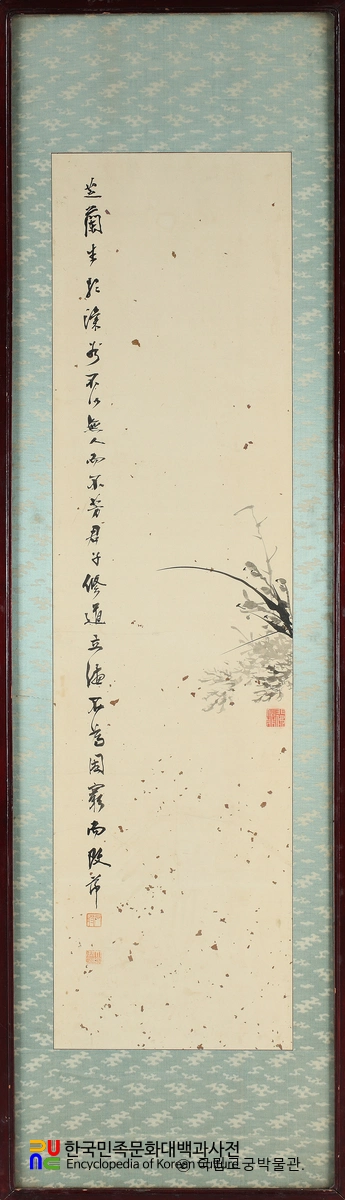 芝蘭生於深谷不以無人而不芳君子修道立德不爲困窮而改節
한국민족문화대백과사전
Encyclopedia of Korean Culture
국립고궁박물관.